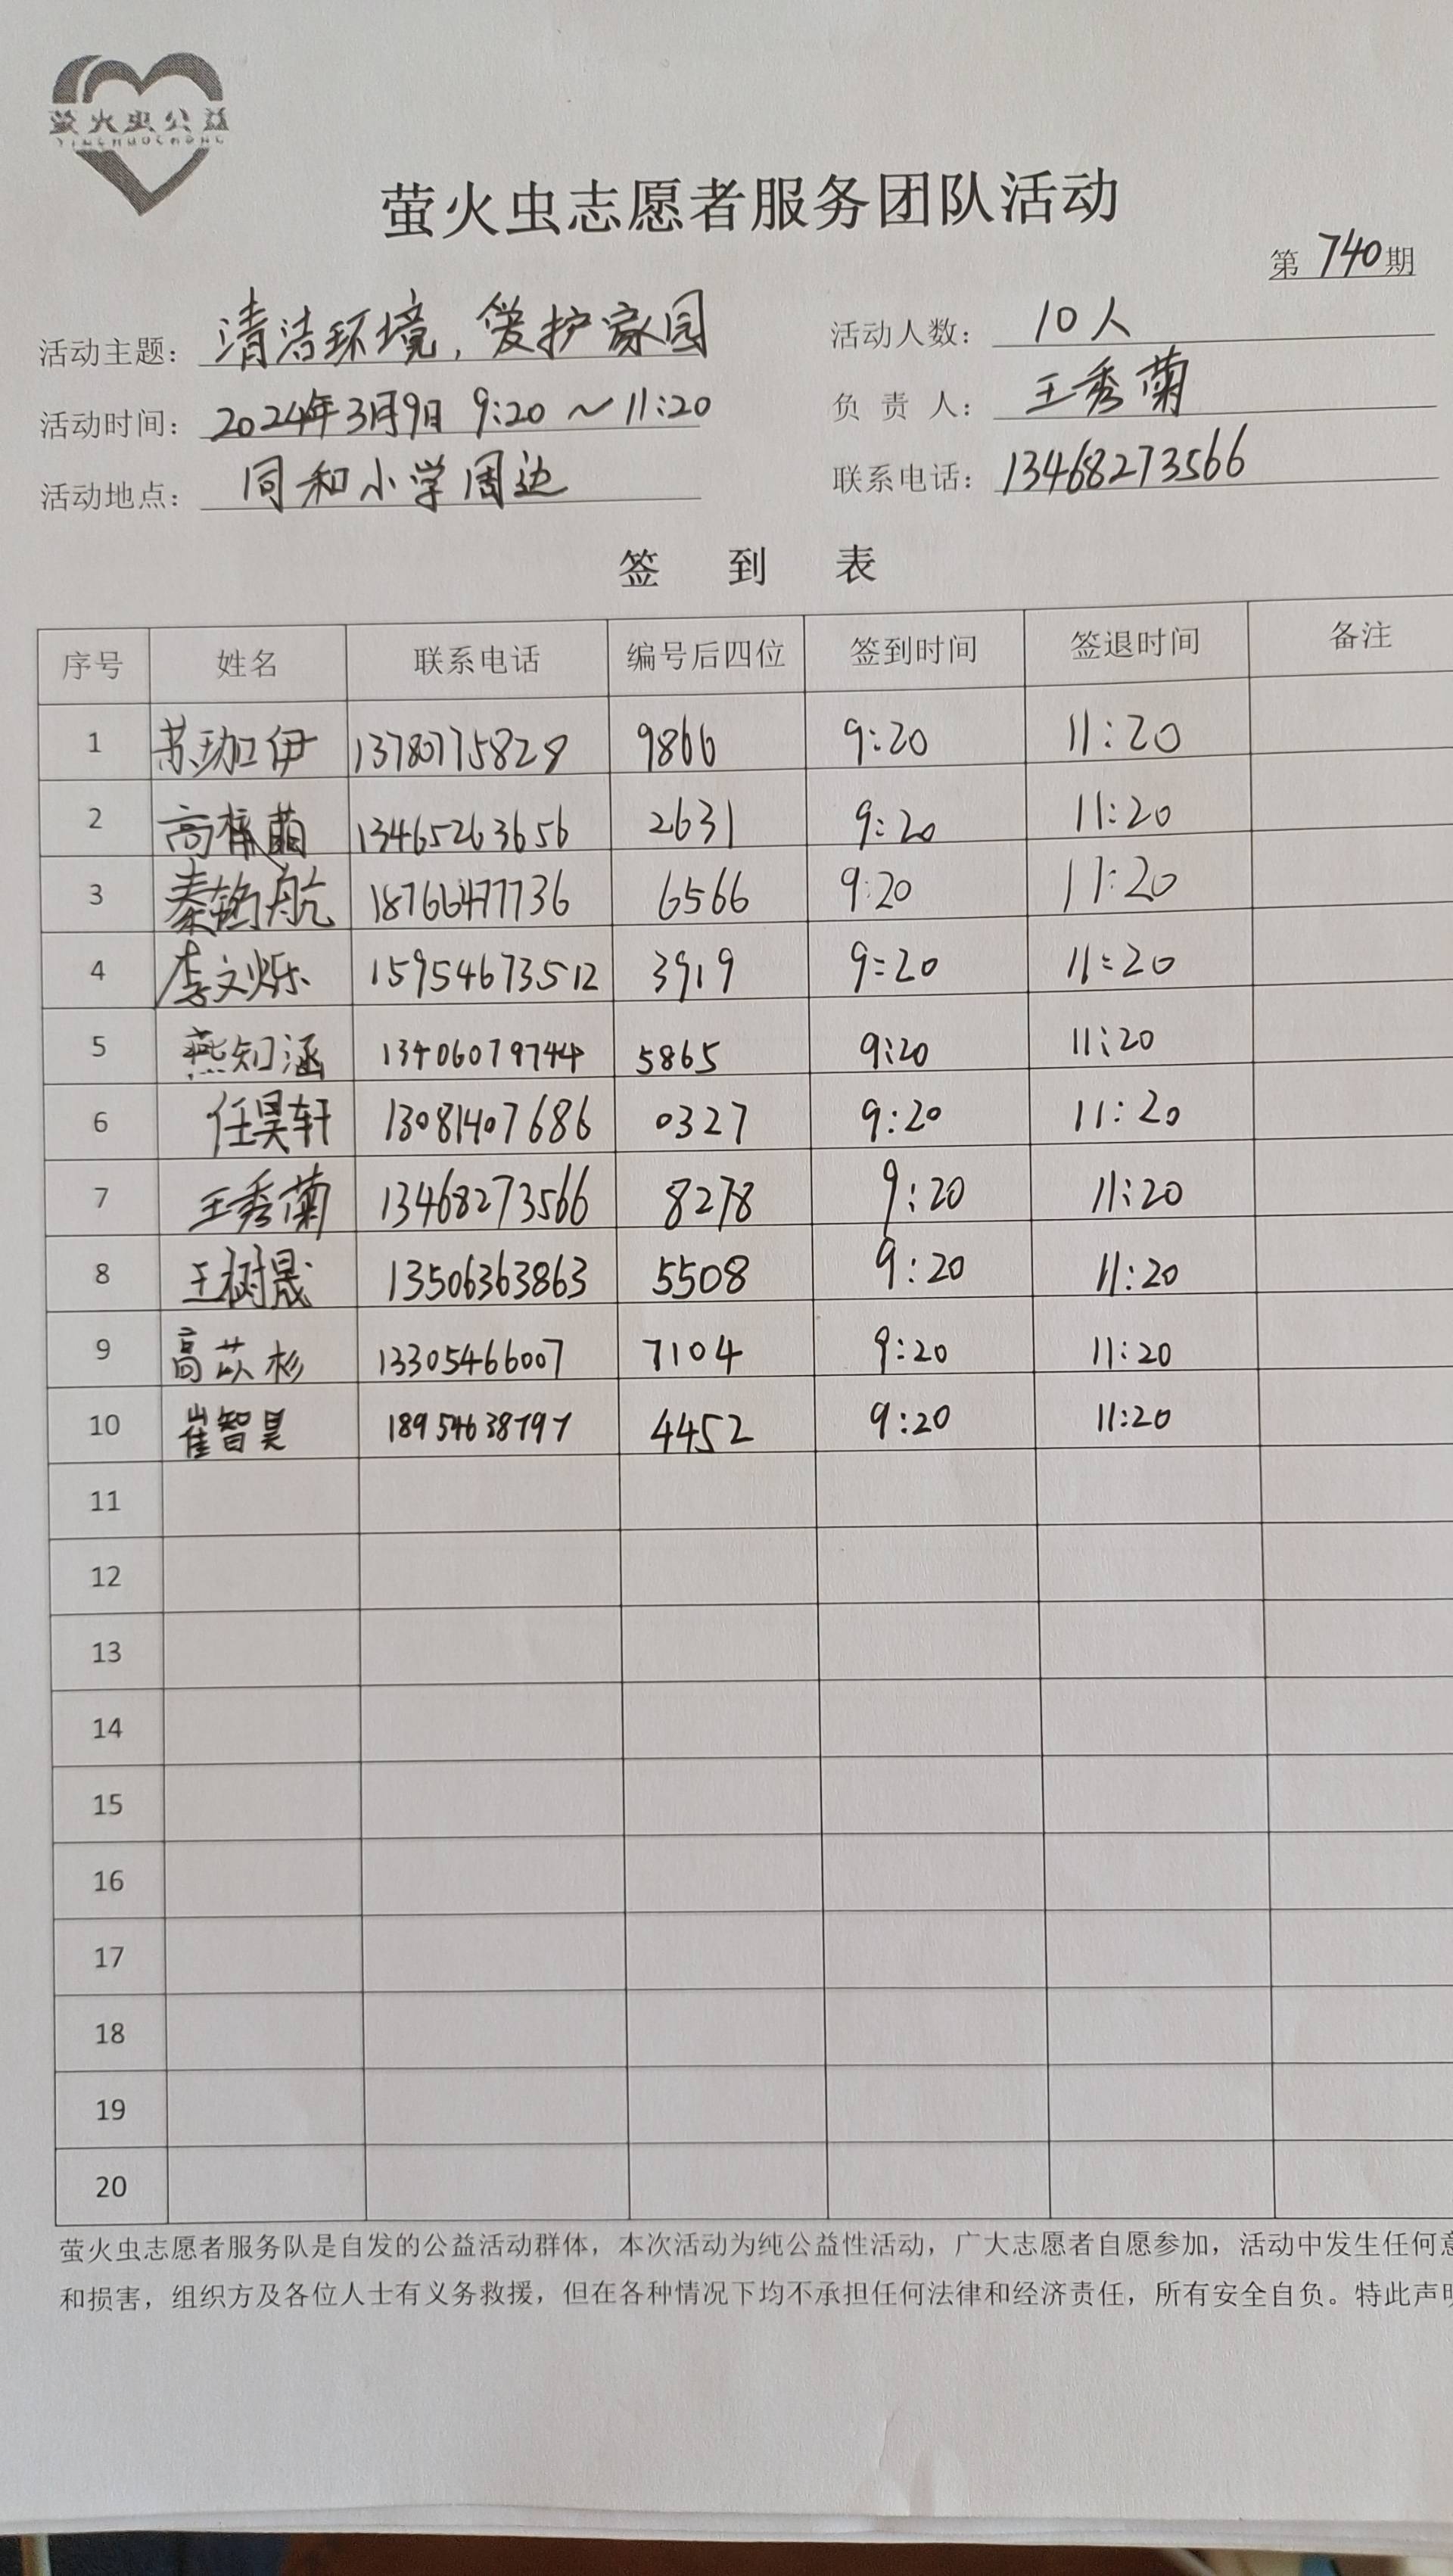 萤火虫公益
YINGHUOCHONG
萤火虫志愿者服务团队活动
第 740 期
活动主题：清洁环境，爱护家园 活动人数：10人
活动时间：2024年3月9日 9:20～11:20 负责人：王秀菊
活动地点：同和小学周边 联系电话：13468273566
签到表
序号 姓名 联系电话 编号后四位 签到时间 签退时间 备注
1 苏珈伊 13780775828 9866 9:20 11:20
2 高 13465263656 2631 9:20 11:20
3 秦铭航 18766477736 6566 9:20 11:20
4 李文烁 15954673512 3919 9:20 11:20
5 燕知涵 13406079744 5865 9:20 11:20
6 任昊轩 13081407686 0327 9:20 11:20
7 王秀菊 13468273566 8278 9:20 11:20
8 王树晟 13506363863 5508 9:20 11:20
9 高苡杉 13305466007 7104 9:20 11:20
10 崔智昊 18954638797 4452 9:20 11:20
11
12
13
14
15
16
17
18
19
20
萤火虫志愿者服务队是自发的公益活动群体，本次活动为纯公益性活动，广大志愿者自愿参加，活动中发生任何意
和损害，组织方及各位人士有义务救援，但在各种情况下均不承担任何法律和经济责任，所有安全自负。特此声明